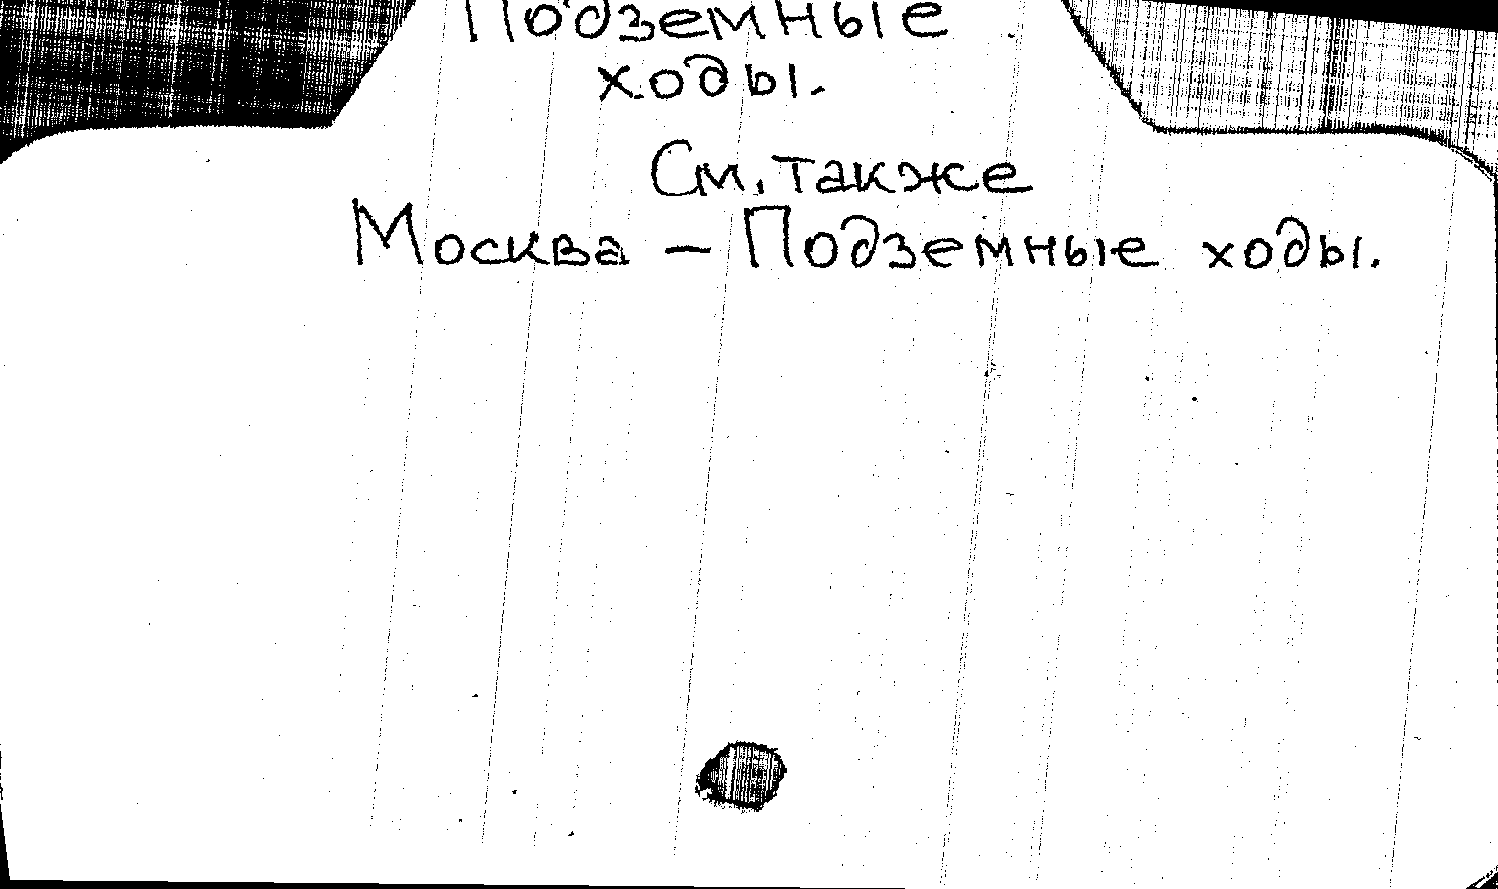 Подземные
ходы.
См. также
Москва – Подземные ходы.